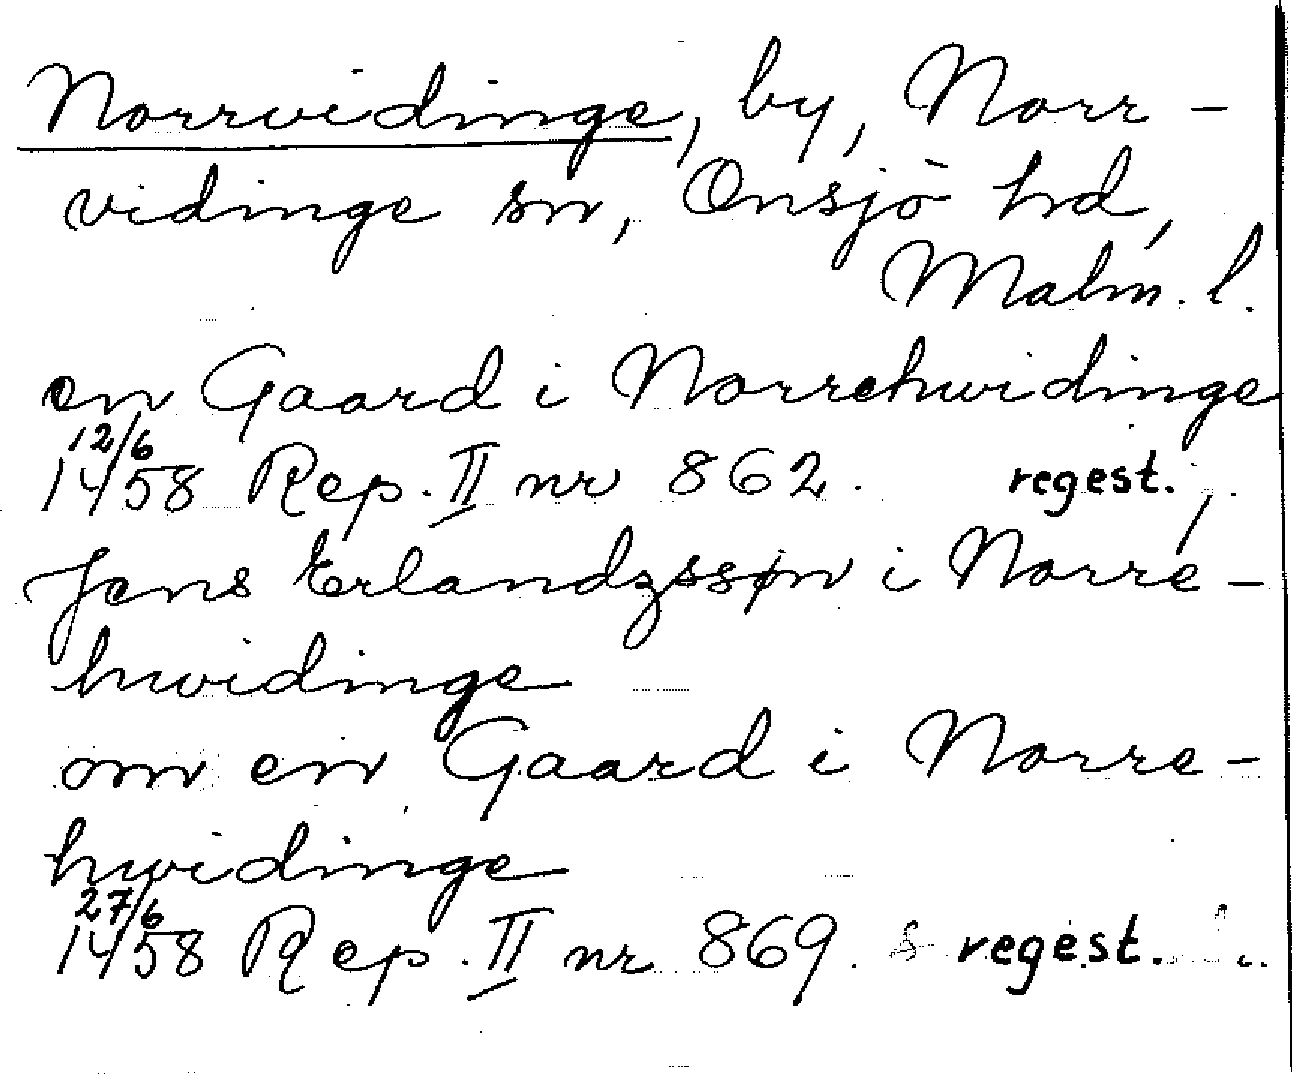 Norrvidinge, by, Norr-
vidinge sn, Onsjö hd,
Malm. l.
en Gaard i Norrehwidinge
12/6
1458 Rep. II nr 862. regest.,
Jens Erlandzssøn i Norre-
hwidinge
om en Gaard i Norre-
hwidinge
27/6
1458 Rep. II nr 869. regest.